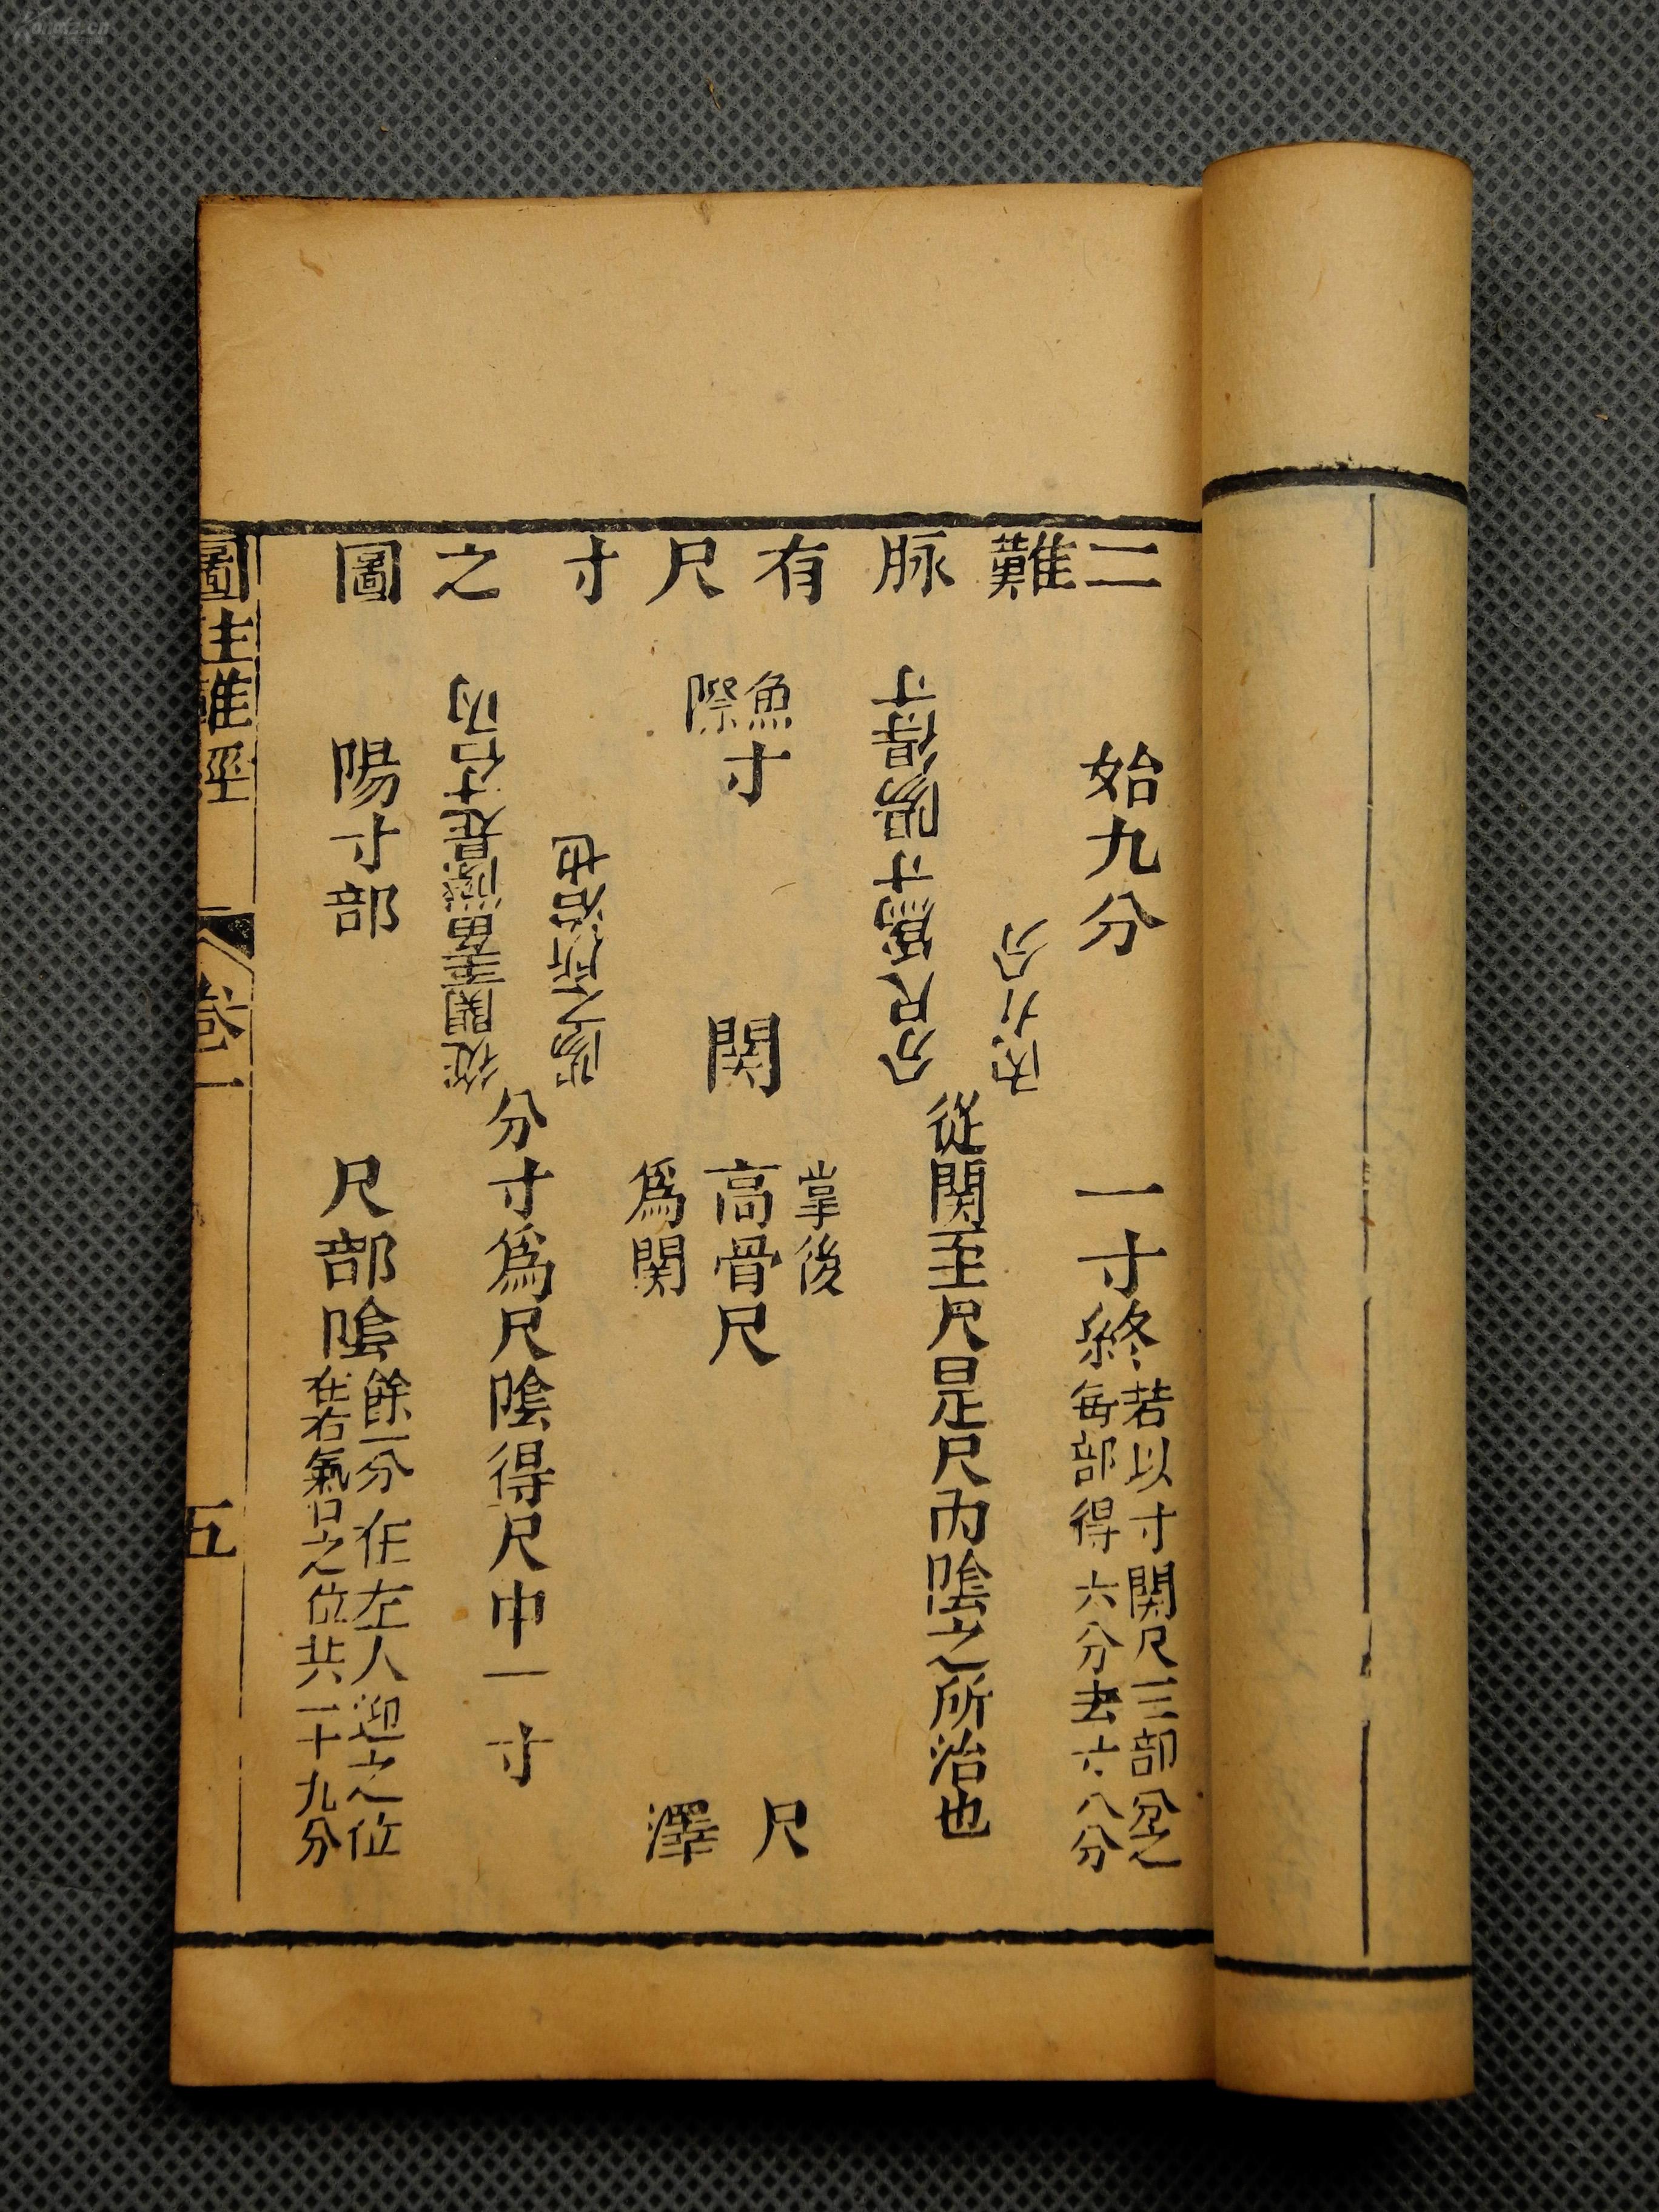 二難脉有尺寸之圖
始九分
一寸終
若以寸関尺三部分之
毎部得六分去六八分
分尺爲寸陽得寸
内九分
從関至尺是尺内陰之所治也
魚
際
寸
関
掌後
高骨
爲関
尺
尺
澤
從関至魚際是寸口内
陽之所治也
分寸爲尺陰得尺中一寸
陽寸部
尺部陰
餘一分在左人迎之位
在右氣口之位共一十九分
圖註難經
卷一
五